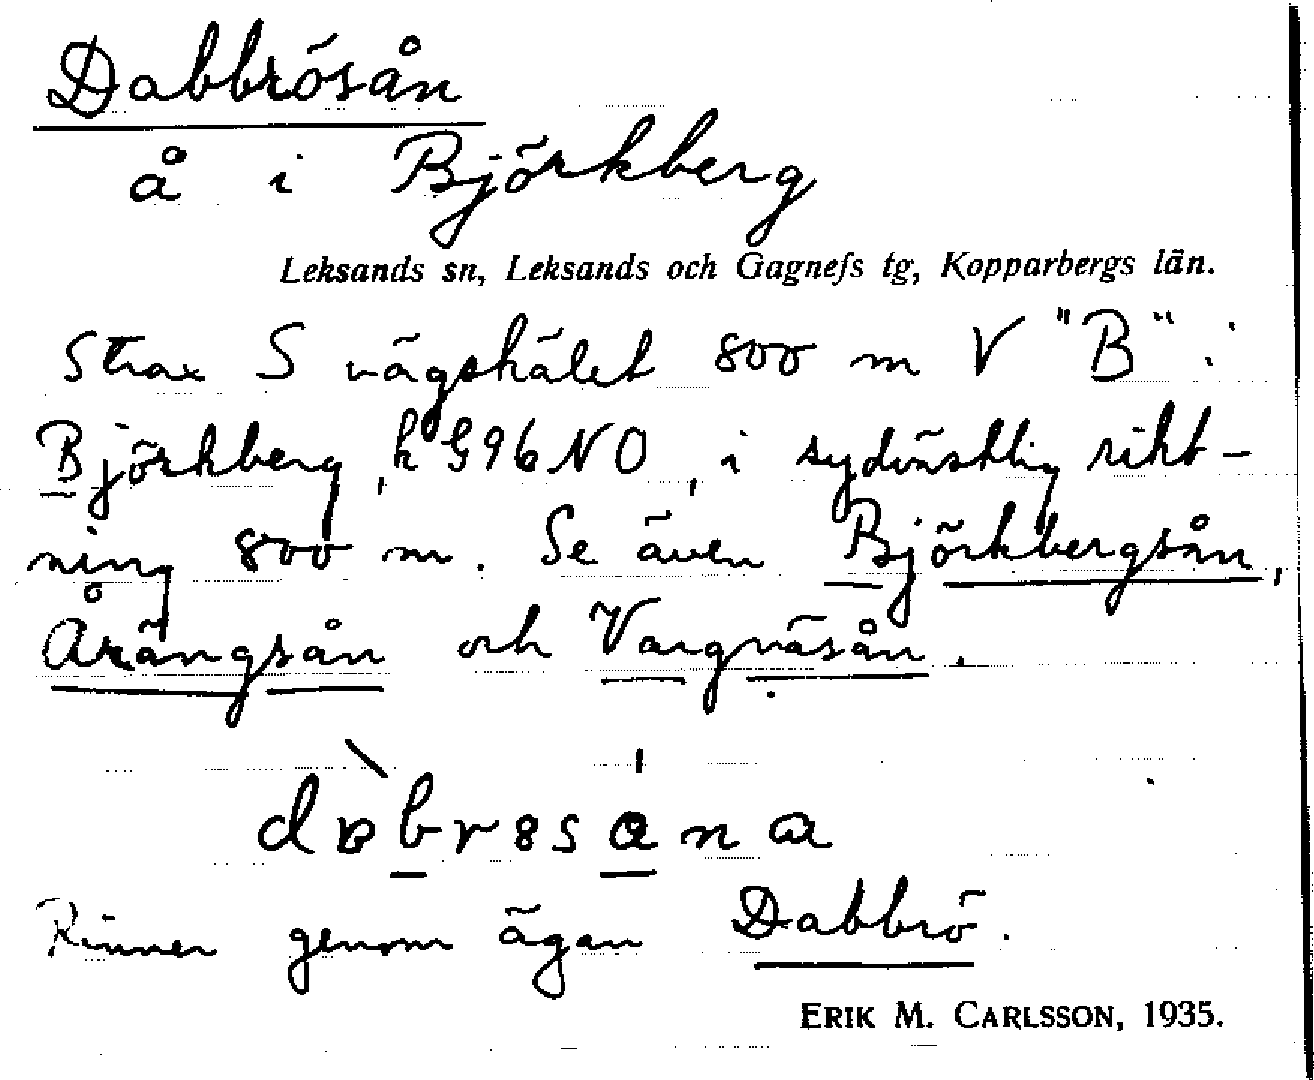 Dabbrösån
å i Björkberg
Leksands sn, Leksands och Gagnefs tg, Kopparbergs län.
Strax S vägskälet 800 m V "B" i
Björkberg, k G96NO, i sydvästlig rikt-
ning 800 m. Se även Björkbergsån,
Årängsån och Vargnäsån.
Rinner genom ägan Dabbrö.
ERIK M. CARLSSON, 1935.